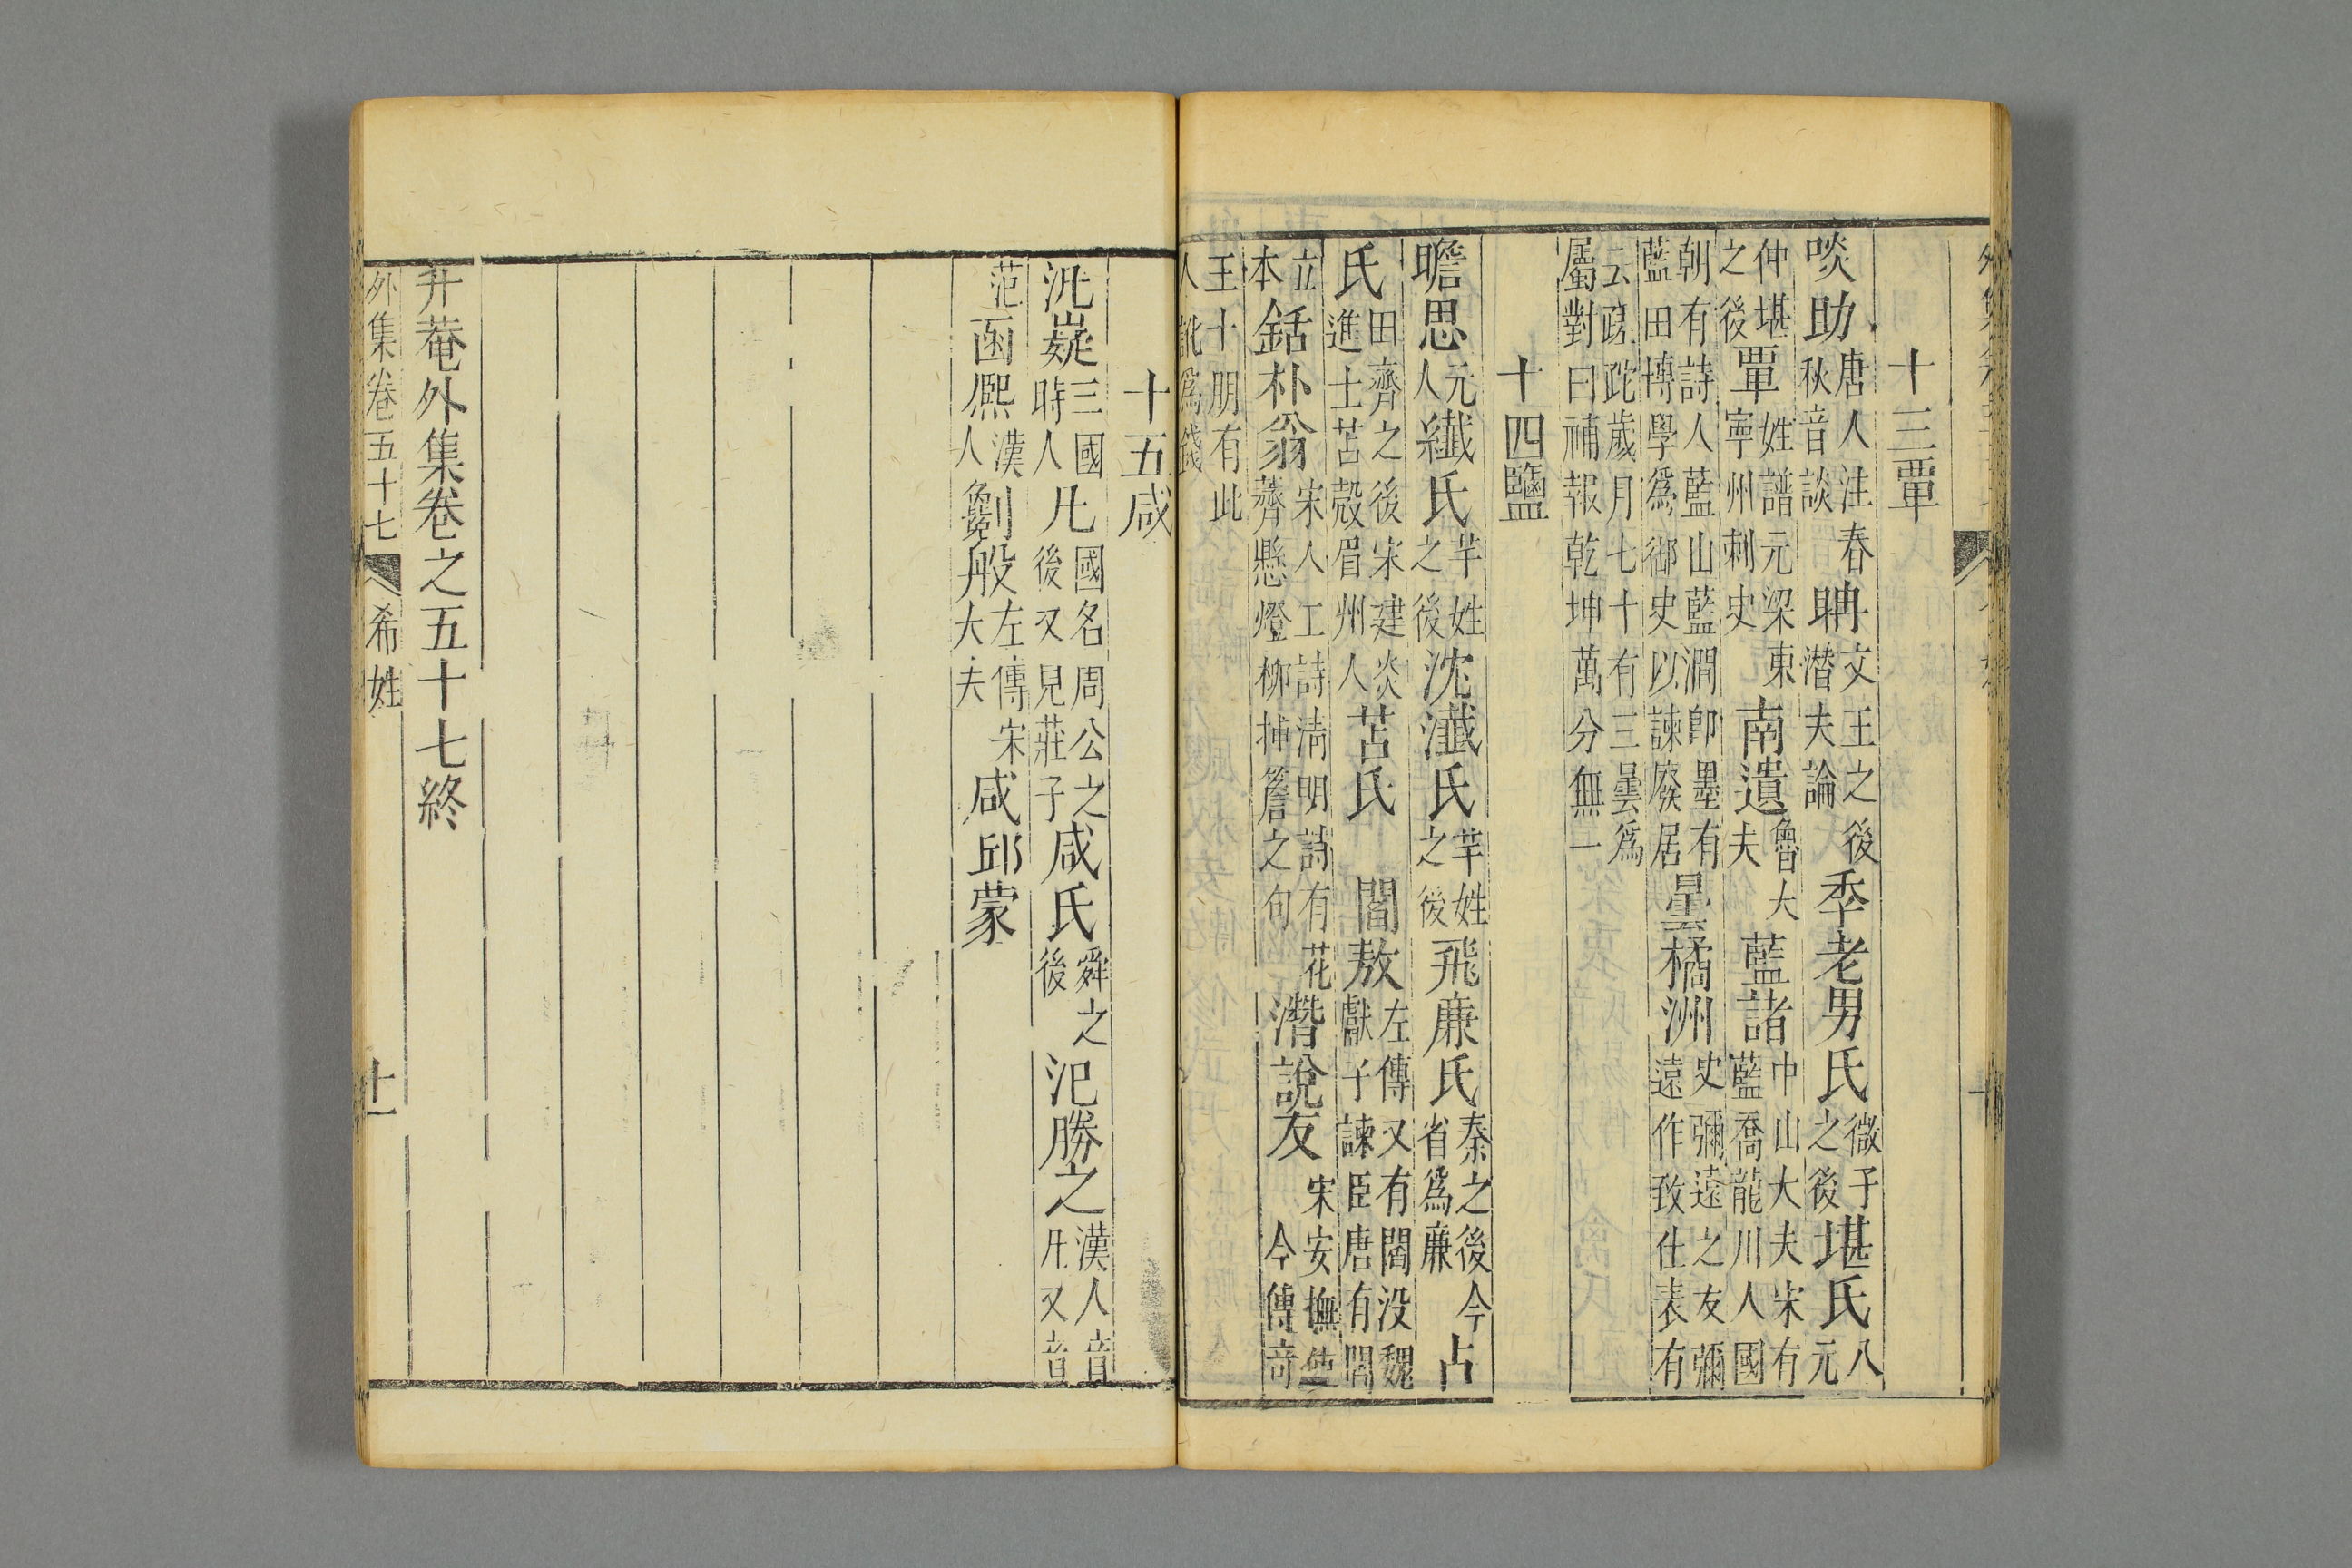 十三覃
啖助唐人注春秋音談 聃文王之後潛夫論 季老男氏微子之後 堪氏八元
仲堪之後 覃姓譜元梁東寧州刺史 南遺魯大夫 藍諸中山大夫宋有藍喬龍川人國
朝有詩人藍山藍澗卽墨有藍田博學爲御史以諫廢居 曇橘洲史彌遠之友彌遠作致仕表有
云疏跎歲月七十有三曇爲屬對曰補報乾坤萬分無一
十四鹽
瞻思元人 纎氏芊姓之後 沈瀸氏芊姓之後 飛廉氏秦之後今省爲廉 占
氏田齊之後宋建炎進士苫殼眉州人 苫氏 閻敖左傳又有閻没魏獻子諫臣唐有閻
立本 銛朴翁宋人工詩淸明詩有花薺懸燈柳揷簷之句 潛說友宋安撫使今傳奇
王十朋有此人訛爲錢
十五咸
氾嶷三國時人 凡國名周公之後又見莊子 咸氏舜之後 汜勝之漢人音凡又音
范 函熈漢人 劖般左傳宋大夫 咸邱蒙
升菴外集卷之五十七終
外集卷五十七 希姓 十一